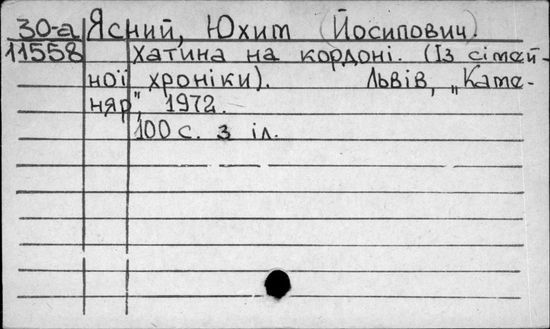 30-а Ясний, Юхим (Йосипович)
11558 Хатина на кордоні. (Із сімей-
ної хроніки). Львів, „Каме-
няр", 1972.
100 с. з іл.